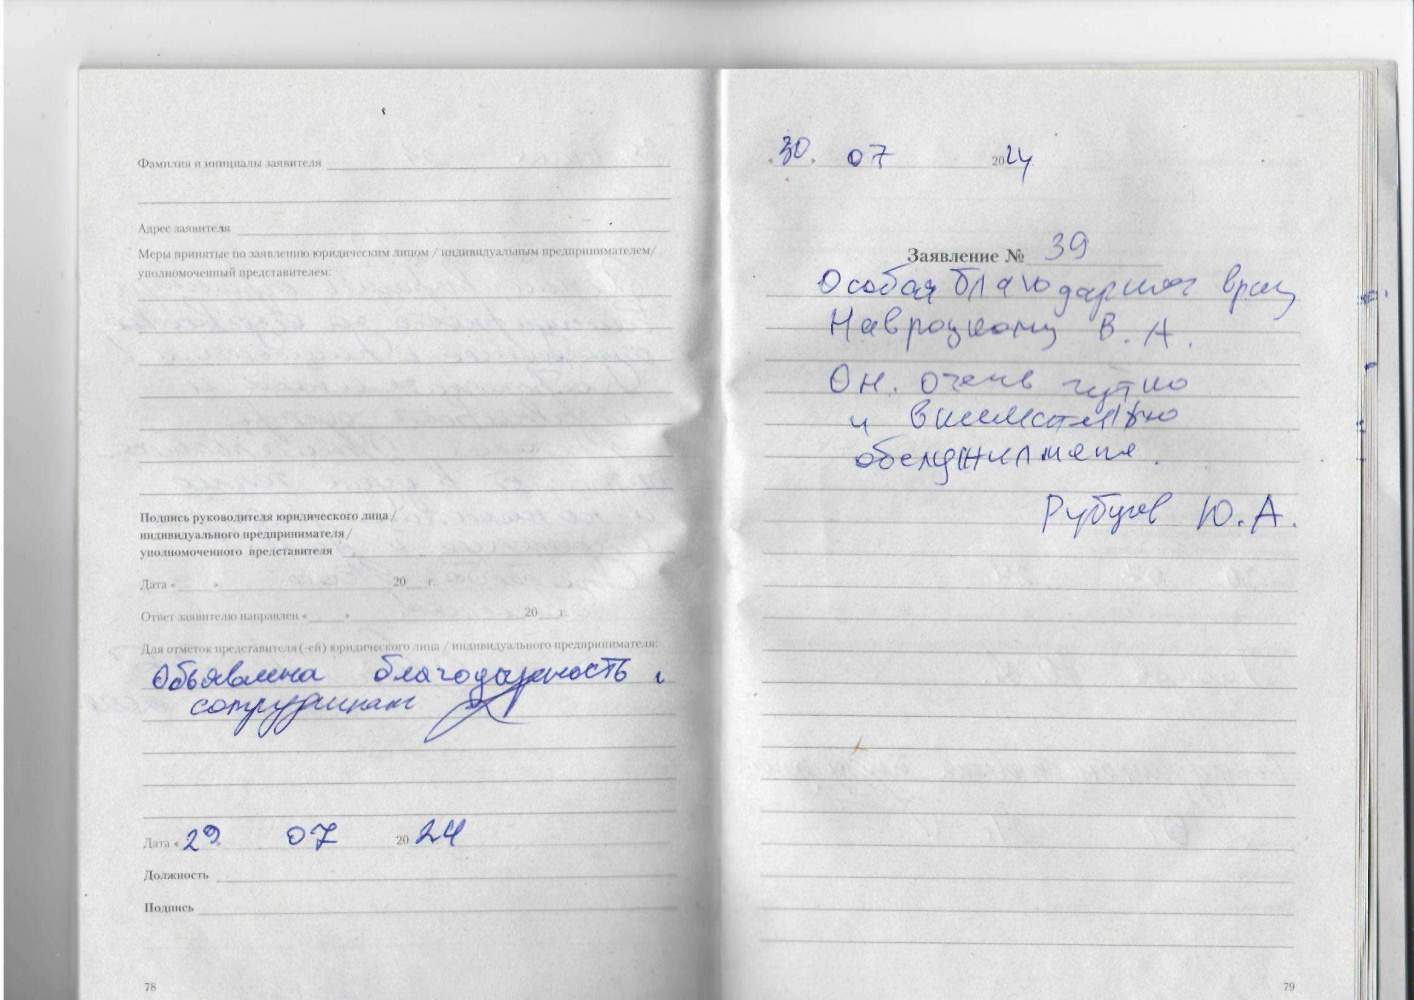 Фамилия и инициалы заявителя
Адрес заявителя
Меры принятые по заявлению юридическим лицом / индивидуальным предпринимателем/
уполномоченный представителем:
Подпись руководителя юридического лица/
индивидуального предпринимателя/
уполномоченного представителя
Дата « » 20 г.
Ответ заявителю направлен « » 20 г.
Для отметок представителя (-ей) юридического лица / индивидуального предпринимателя:
Объявлена благодарность
сотрудникам
Дата « 29 07 20 24
Должность
Подпись
78
30. 07 2024
Заявление № 39
Особая благодарность врачу
Навроцкому В. А.
Он. очень чутко
и внимательно
обслужил меня.
Ю. А.
79